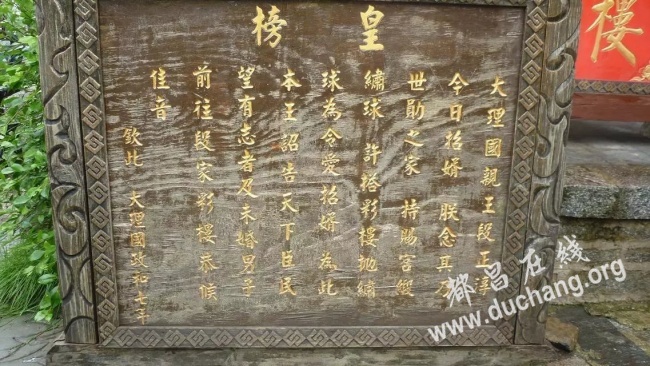 皇榜
大理國親王段正淳
今日招婿 朕念其乃
世勛之家 特賜宫緞
繡球 許裕彩樓抛繡
球為令愛招婿 為此
本王詔告天下臣民
望有志者及未婚男子
前往段家彩樓恭候
佳音
欽此 大理國政和七年
樓
都昌在线
www.duchang.org